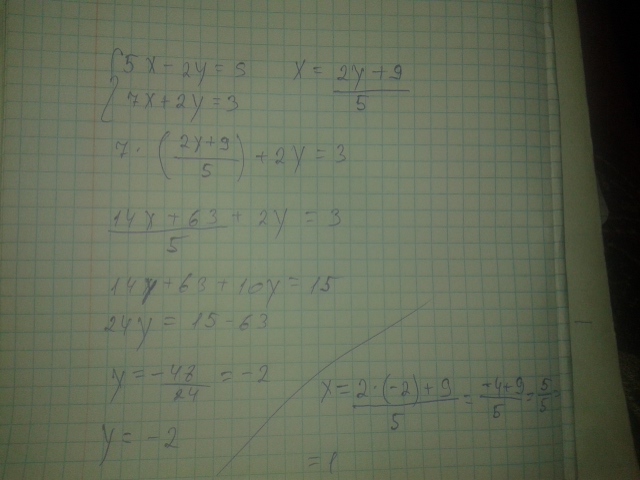 { 5x - 2y = 9    x = (2y + 9)/5
{ 7x + 2y = 3
7 · ((2y + 9)/5) + 2y = 3
(14y + 63)/5 + 2y = 3
14y + 63 + 10y = 15
24y = 15 - 63
y = -48/24 = -2
x = (2·(-2) + 9)/5 = (-4 + 9)/5 = 5/5
y = -2
= 1